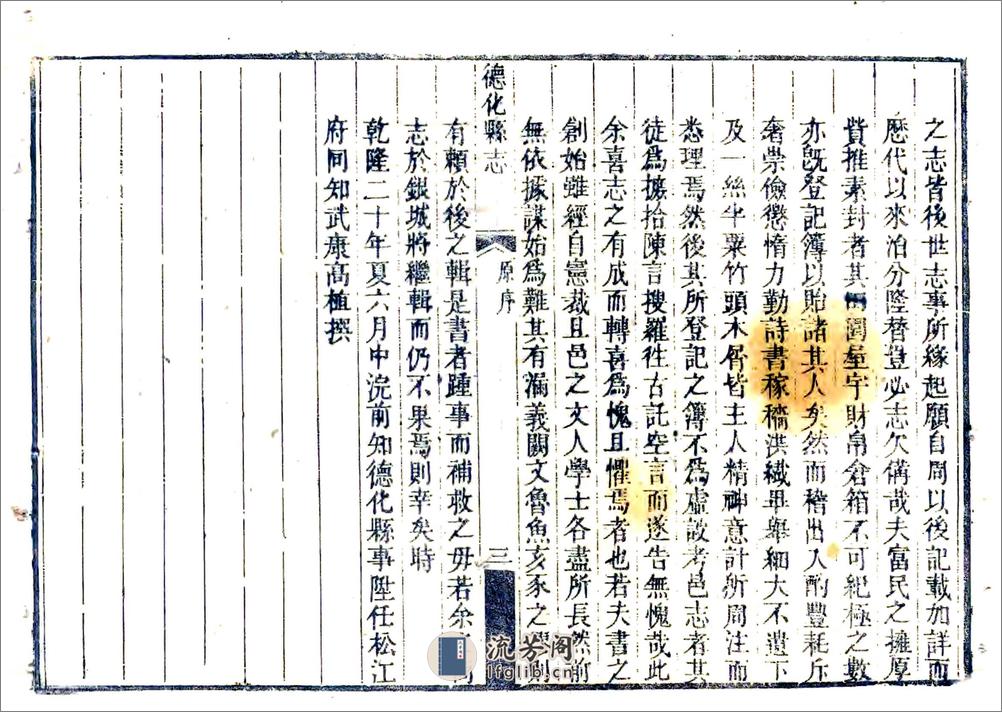 之志皆後世志事所緣起願自周以後記載加詳而
歷代以來治分隆替豈必志欠備哉夫富民之擁厚
貲推素封者其田園屋宇財帛倉箱不可紀極之數
亦旣登記簿以貽諸其人矣然而稽出入酌豐耗斥
奢崇儉懲惰力勤詩書稼穡洪纖畢舉細大不遺下
及一絲半粟竹頭木屑皆主人精神意計所周注而
悉理焉然後其所登記之簿不爲虛設考邑志者其
徒爲摭拾陳言搜羅徃古託空言而遂告無愧哉此
余喜志之有成而轉喜爲愧且懼焉者也若夫書之
創始雖經自憲裁且邑之文人學士各盡所長然前
無依據謀始爲難其有漏義闕文魯魚亥豕之
德化縣志
原序
三
有賴於後之輯是書者踵事而補救之毋若余
志於銀城將繼輯而仍不果焉則幸矣時
乾隆二十年夏六月中浣前知德化縣事陞任松江
府同知武康高植撰
流芳阁
lfglib.cn